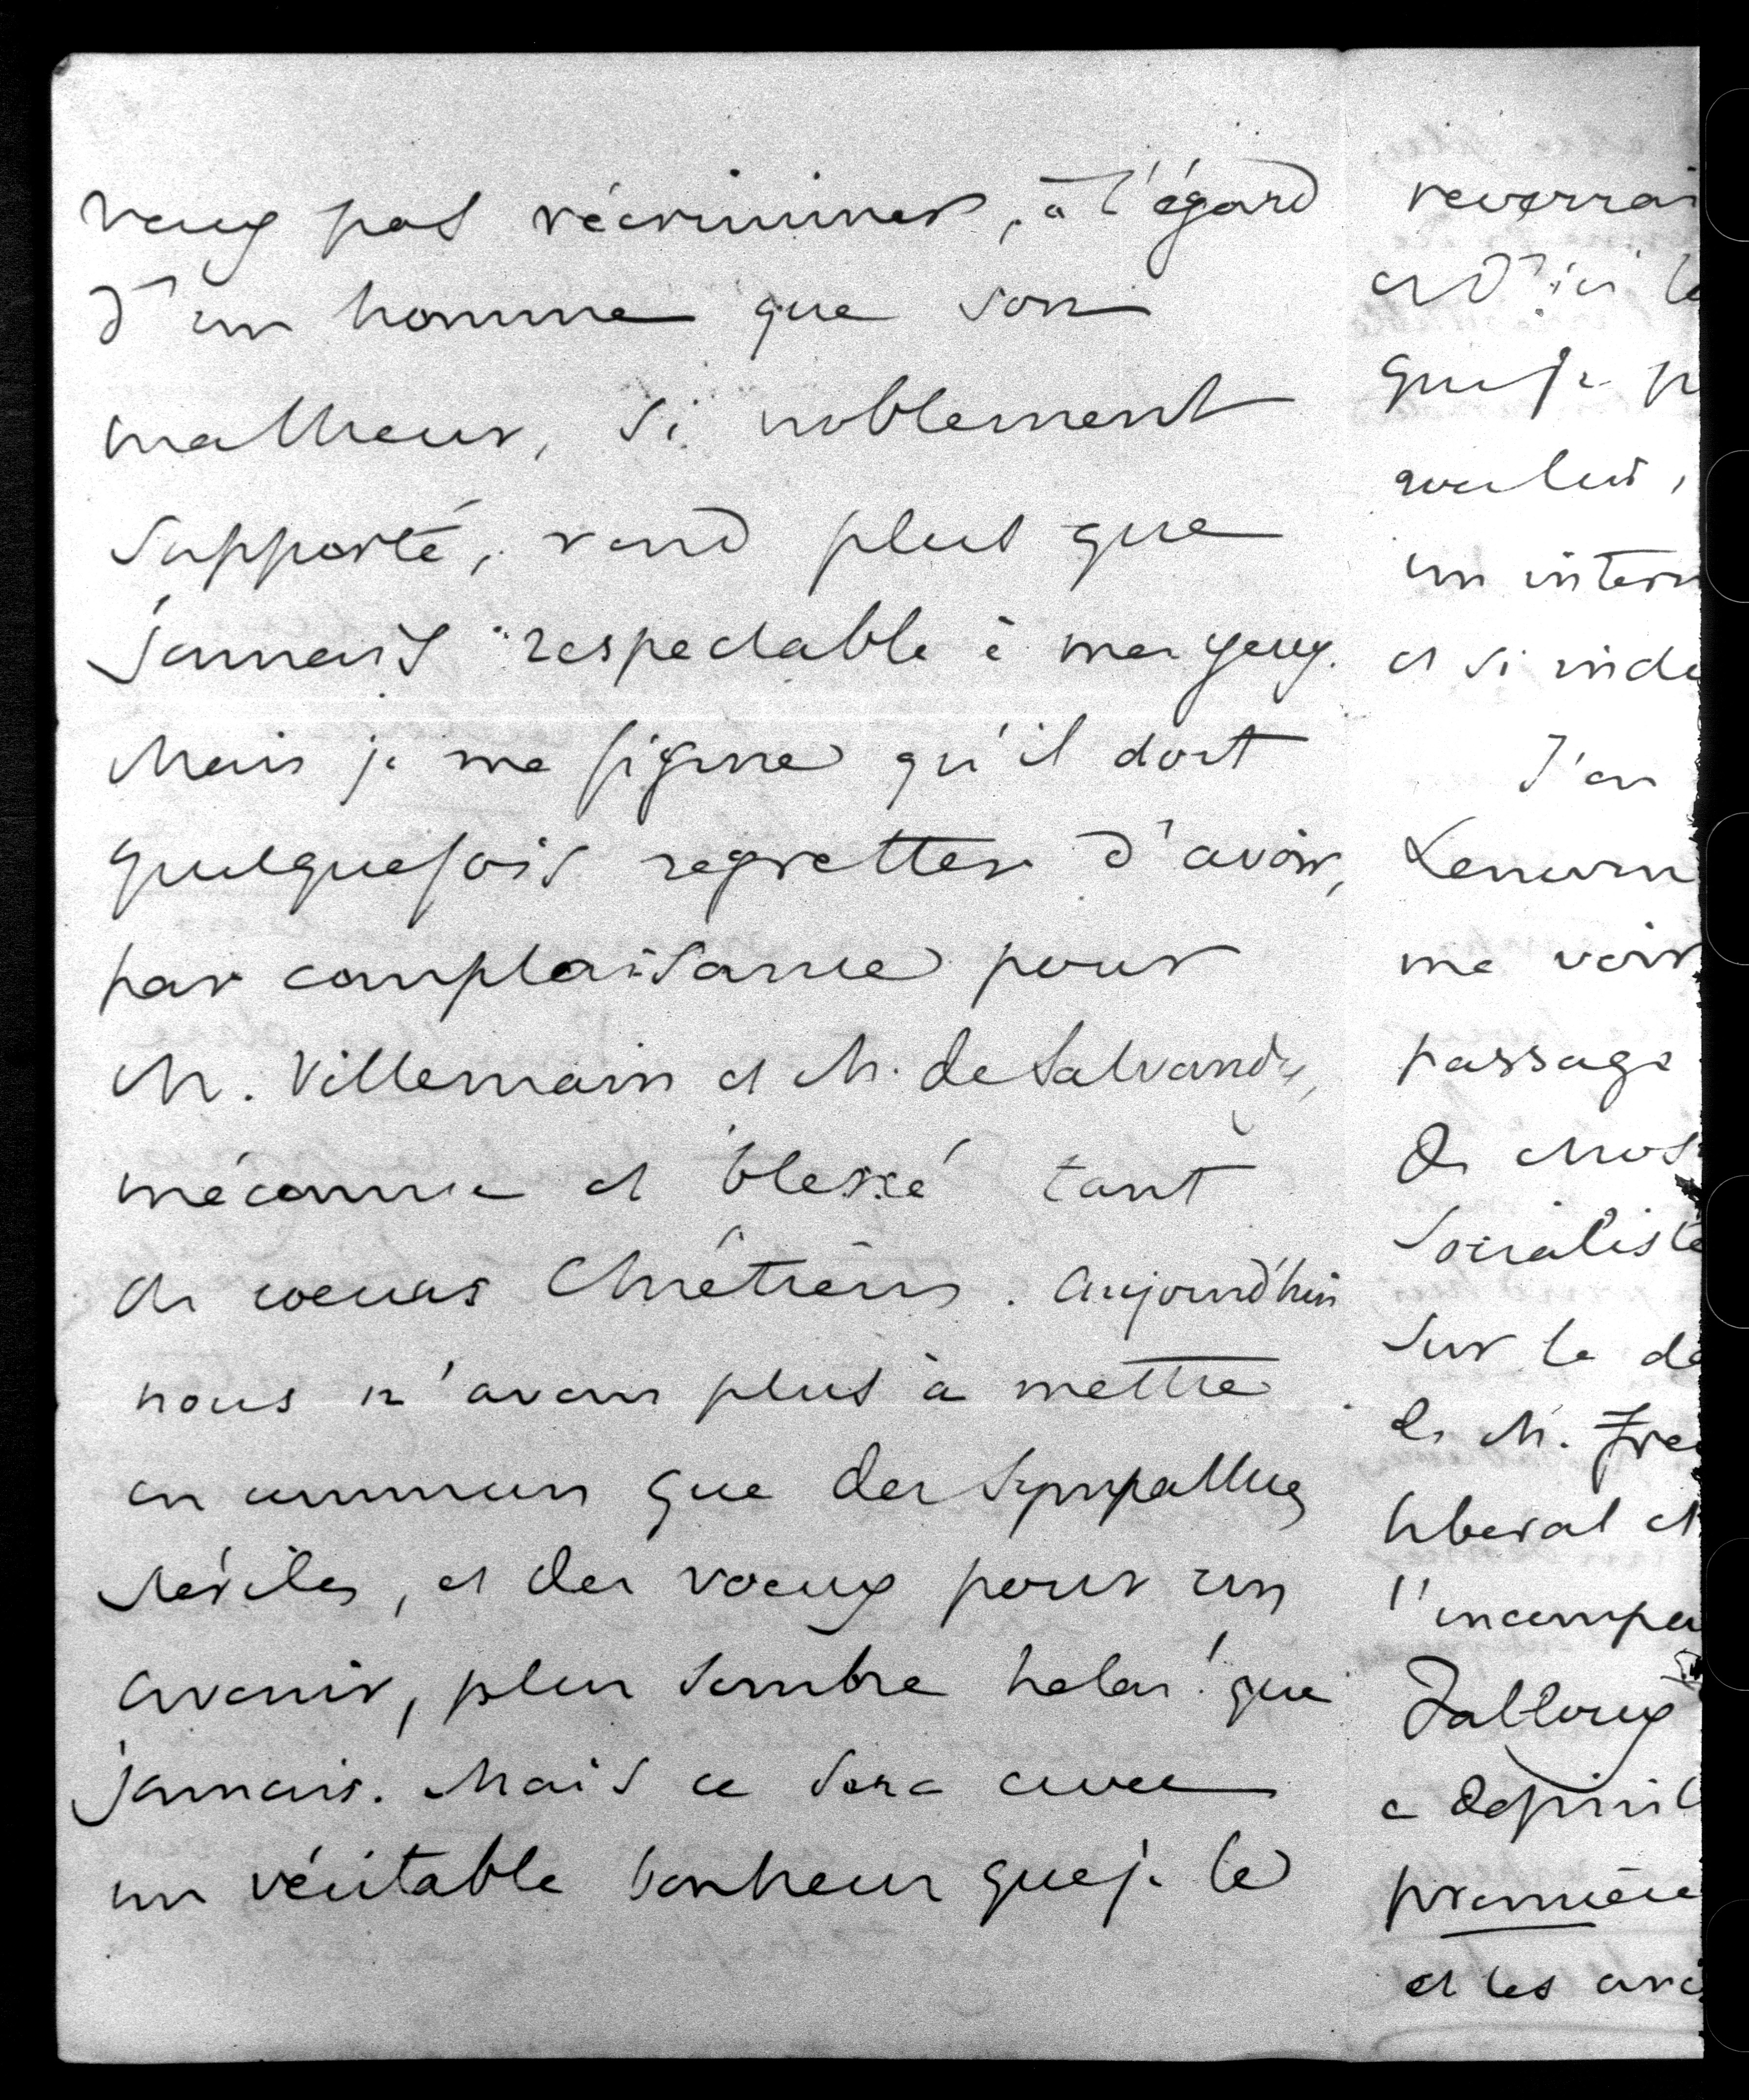 veux pas récriminer, à l'égard
d'un homme que son
malheur, si noblement
supporté, rend plus que
jamais respectable à mes yeux.
Mais je me figure qu'il doit
quelquefois regretter d'avoir,
par complaisance pour
M. Villemain et M. de Salvandy,
méconnu et blessé tant
de coeurs Chrétiens. Aujourd'hui
nous n'avons plus à mettre
en commun que des sympathies
stériles, et des voeux pour un
avenir, plus sombre helas! que
jamais. Mais ce sera avec
un véritable bonheur que je le
reverrai
et d'ici le
que je p
voulus,
un intern
et si inde
J'en
Lenorm
me voir
passage
de chos
Socialiste
sur le de
de M. Fre
liberal et
l'incompa
Falloux
a definit
première
et les avo